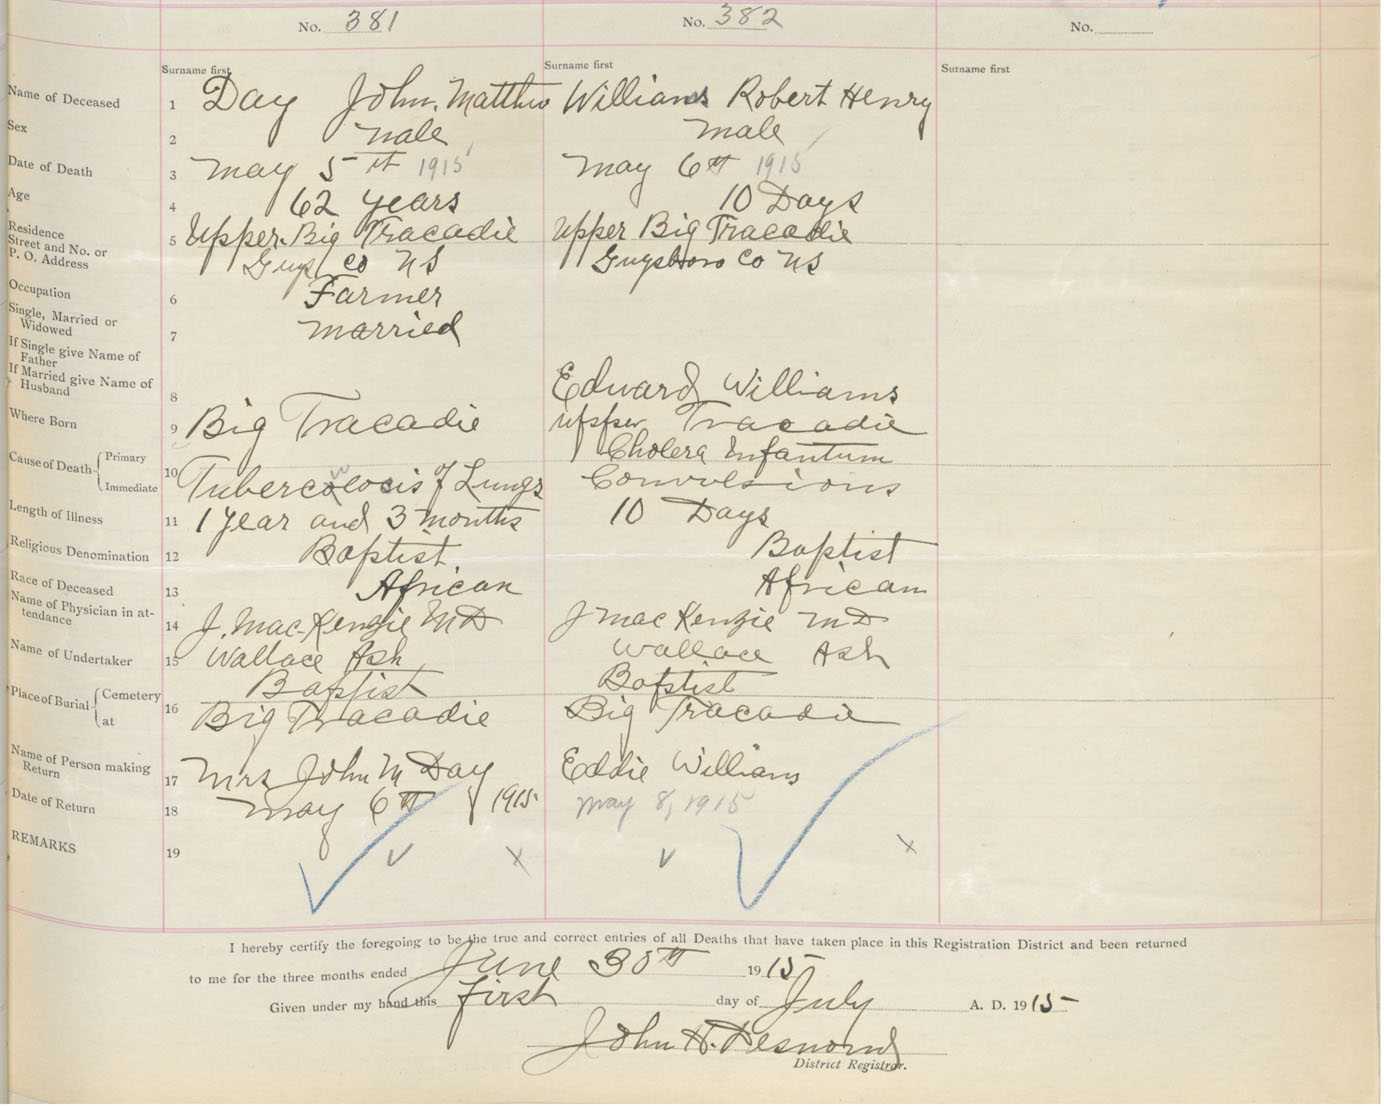 No. 381 No. 382 No.
Surname first Surname first Surname first
Name of Deceased 1 Day John. Matthw Williams Robert Henry
Sex 2 male male
Date of Death 3 may 5th 1915 may 6th 1915
Age 4 62 years 10 Days
Residence
Street and No. or
P. O. Address
5 Upper. Big Tracadie upper Big Tracadie
Guys Co NS Guysboro Co NS
Occupation 6 Farmer
Single, Married or
Widowed
7 married
If Single give Name of
Father
If Married give Name of
Husband
8 Edward Williams
Where Born 9 Big Tracadie upper Tracadie
Cause of Death Primary Cholera Infantum
10
Immediate Tubercolocis of Lungs Convulsions
Length of Illness 11 1 year and 3 months 10 Days
Religious Denomination 12 Baptist Baptist
Race of Deceased 13 African African
Name of Physician in at-
tendance
14 J. MacKenzie MD J MacKenzie MD
Name of Undertaker 15 Wallace Ash Wallace Ash
Place of Burial Cemetery Baptist Baptist
16
at Big Tracadie Big Tracadie
Name of Person making
Return
17 Mrs John M Day Eddie Williams
Date of Return 18 may 6th 1915 May 8, 1915
REMARKS 19
I hereby certify the foregoing to be the true and correct entries of all Deaths that have taken place in this Registration District and been returned
to me for the three months ended June 30th 1915
Given under my hand this first day of July A. D. 1915
John H. Desmond
District Registrar.